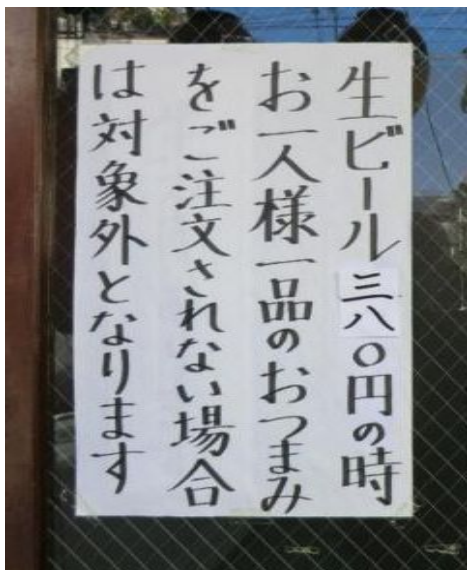 生ビール三八〇円の時
お一人様一品のおつまみ
をご注文されない場合
は対象外となります